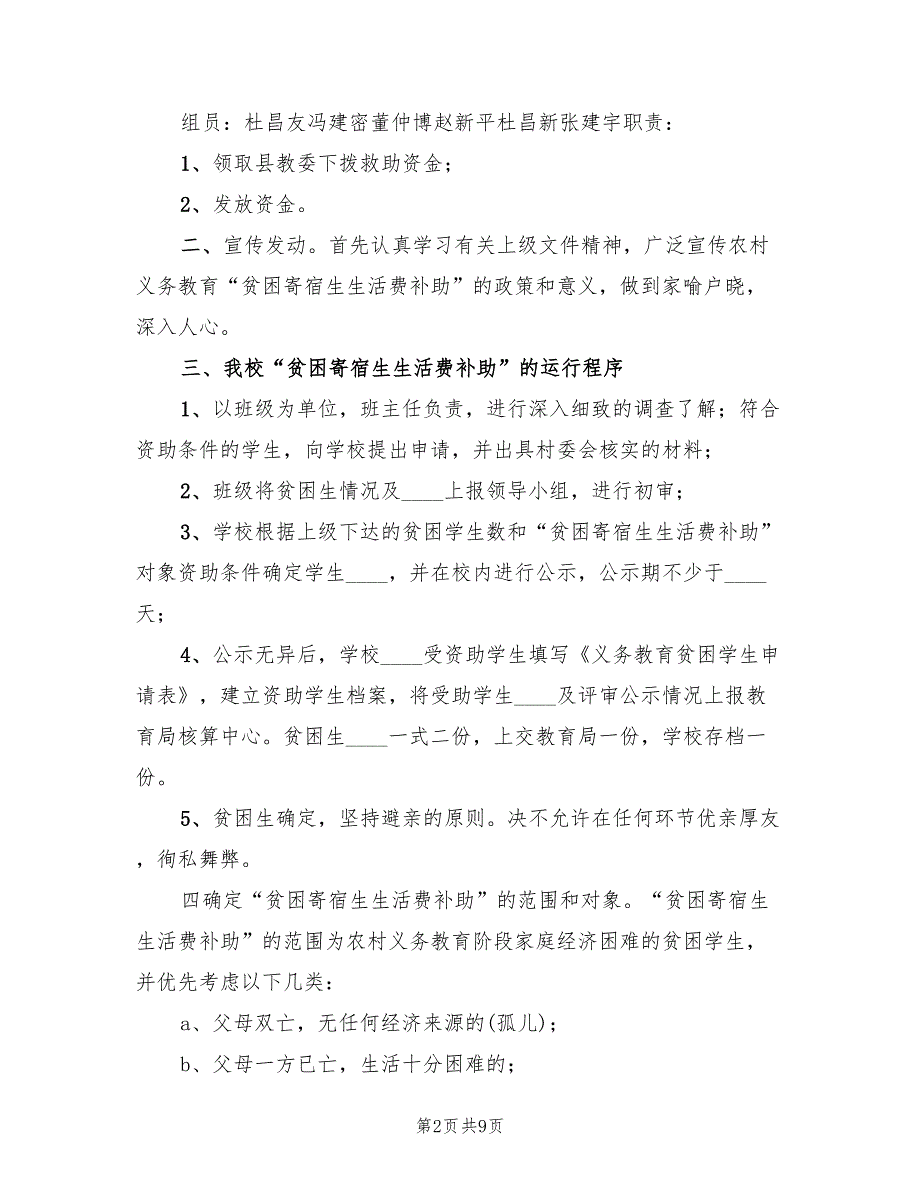 组员：杜昌友冯建密董仲博赵新平杜昌新张建宇职责：
1、领取县教委下拨救助资金；
2、发放资金。
二、宣传发动。首先认真学习有关上级文件精神，广泛宣传农村
义务教育“贫困寄宿生生活费补助”的政策和意义，做到家喻户晓，
深入人心。
三、我校“贫困寄宿生生活费补助”的运行程序
1、以班级为单位，班主任负责，进行深入细致的调查了解；符合
资助条件的学生，向学校提出申请，并出具村委会核实的材料；
2、班级将贫困生情况及____上报领导小组，进行初审；
3、学校根据上级下达的贫困学生数和“贫困寄宿生生活费补助”
对象资助条件确定学生____，并在校内进行公示，公示期不少于____
天；
4、公示无异后，学校____受资助学生填写《义务教育贫困学生申
请表》，建立资助学生档案，将受助学生____及评审公示情况上报教
育局核算中心。贫困生____一式二份，上交教育局一份，学校存档一
份。
5、贫困生确定，坚持避亲的原则。决不允许在任何环节优亲厚友
，徇私舞弊。
四确定“贫困寄宿生生活费补助”的范围和对象。“贫困寄宿生
生活费补助”的范围为农村义务教育阶段家庭经济困难的贫困学生，
并优先考虑以下几类：
a、父母双亡，无任何经济来源的(孤儿)；
b、父母一方已亡，生活十分困难的；
第2页共9页